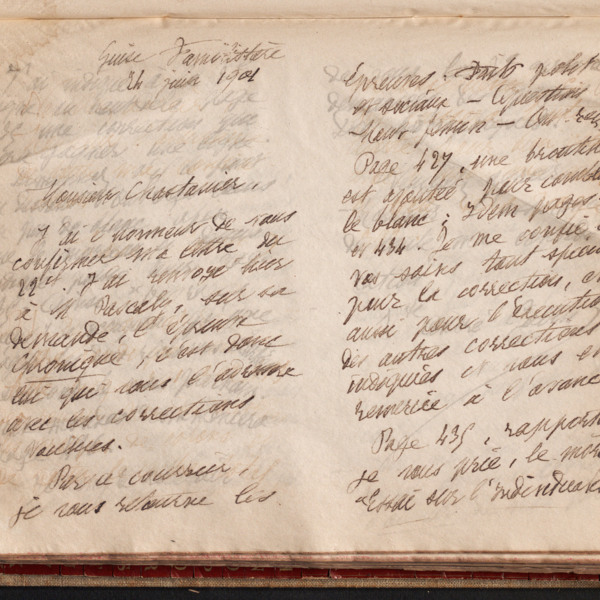 Guise Familistère
24 juin 1901
Monsieur Chastanier,
J'ai l'honneur de vous
confirmer ma lettre du
22 ct. J'ai renvoyé hier
à M Pascaly, sur sa
demande, l'épreuve
Chronique, c'est donc
lui qui vous l'adressera
avec les corrections
voulues.
Par ce courrier
je vous retourne les
épreuves. Faits polit
et sociaux — Questions
Page 427, une
est ajoutée pour comble
le blanc; Idem pages
et 434. Je me confie
vos soins tout spéci
pour la correction, c
aussi pour l'exécutio
des autres corrections
indiquées et vous e
remercie à l'avanc
Page 435, rapport
je vous prie, le mot
"Essai sur l'individua